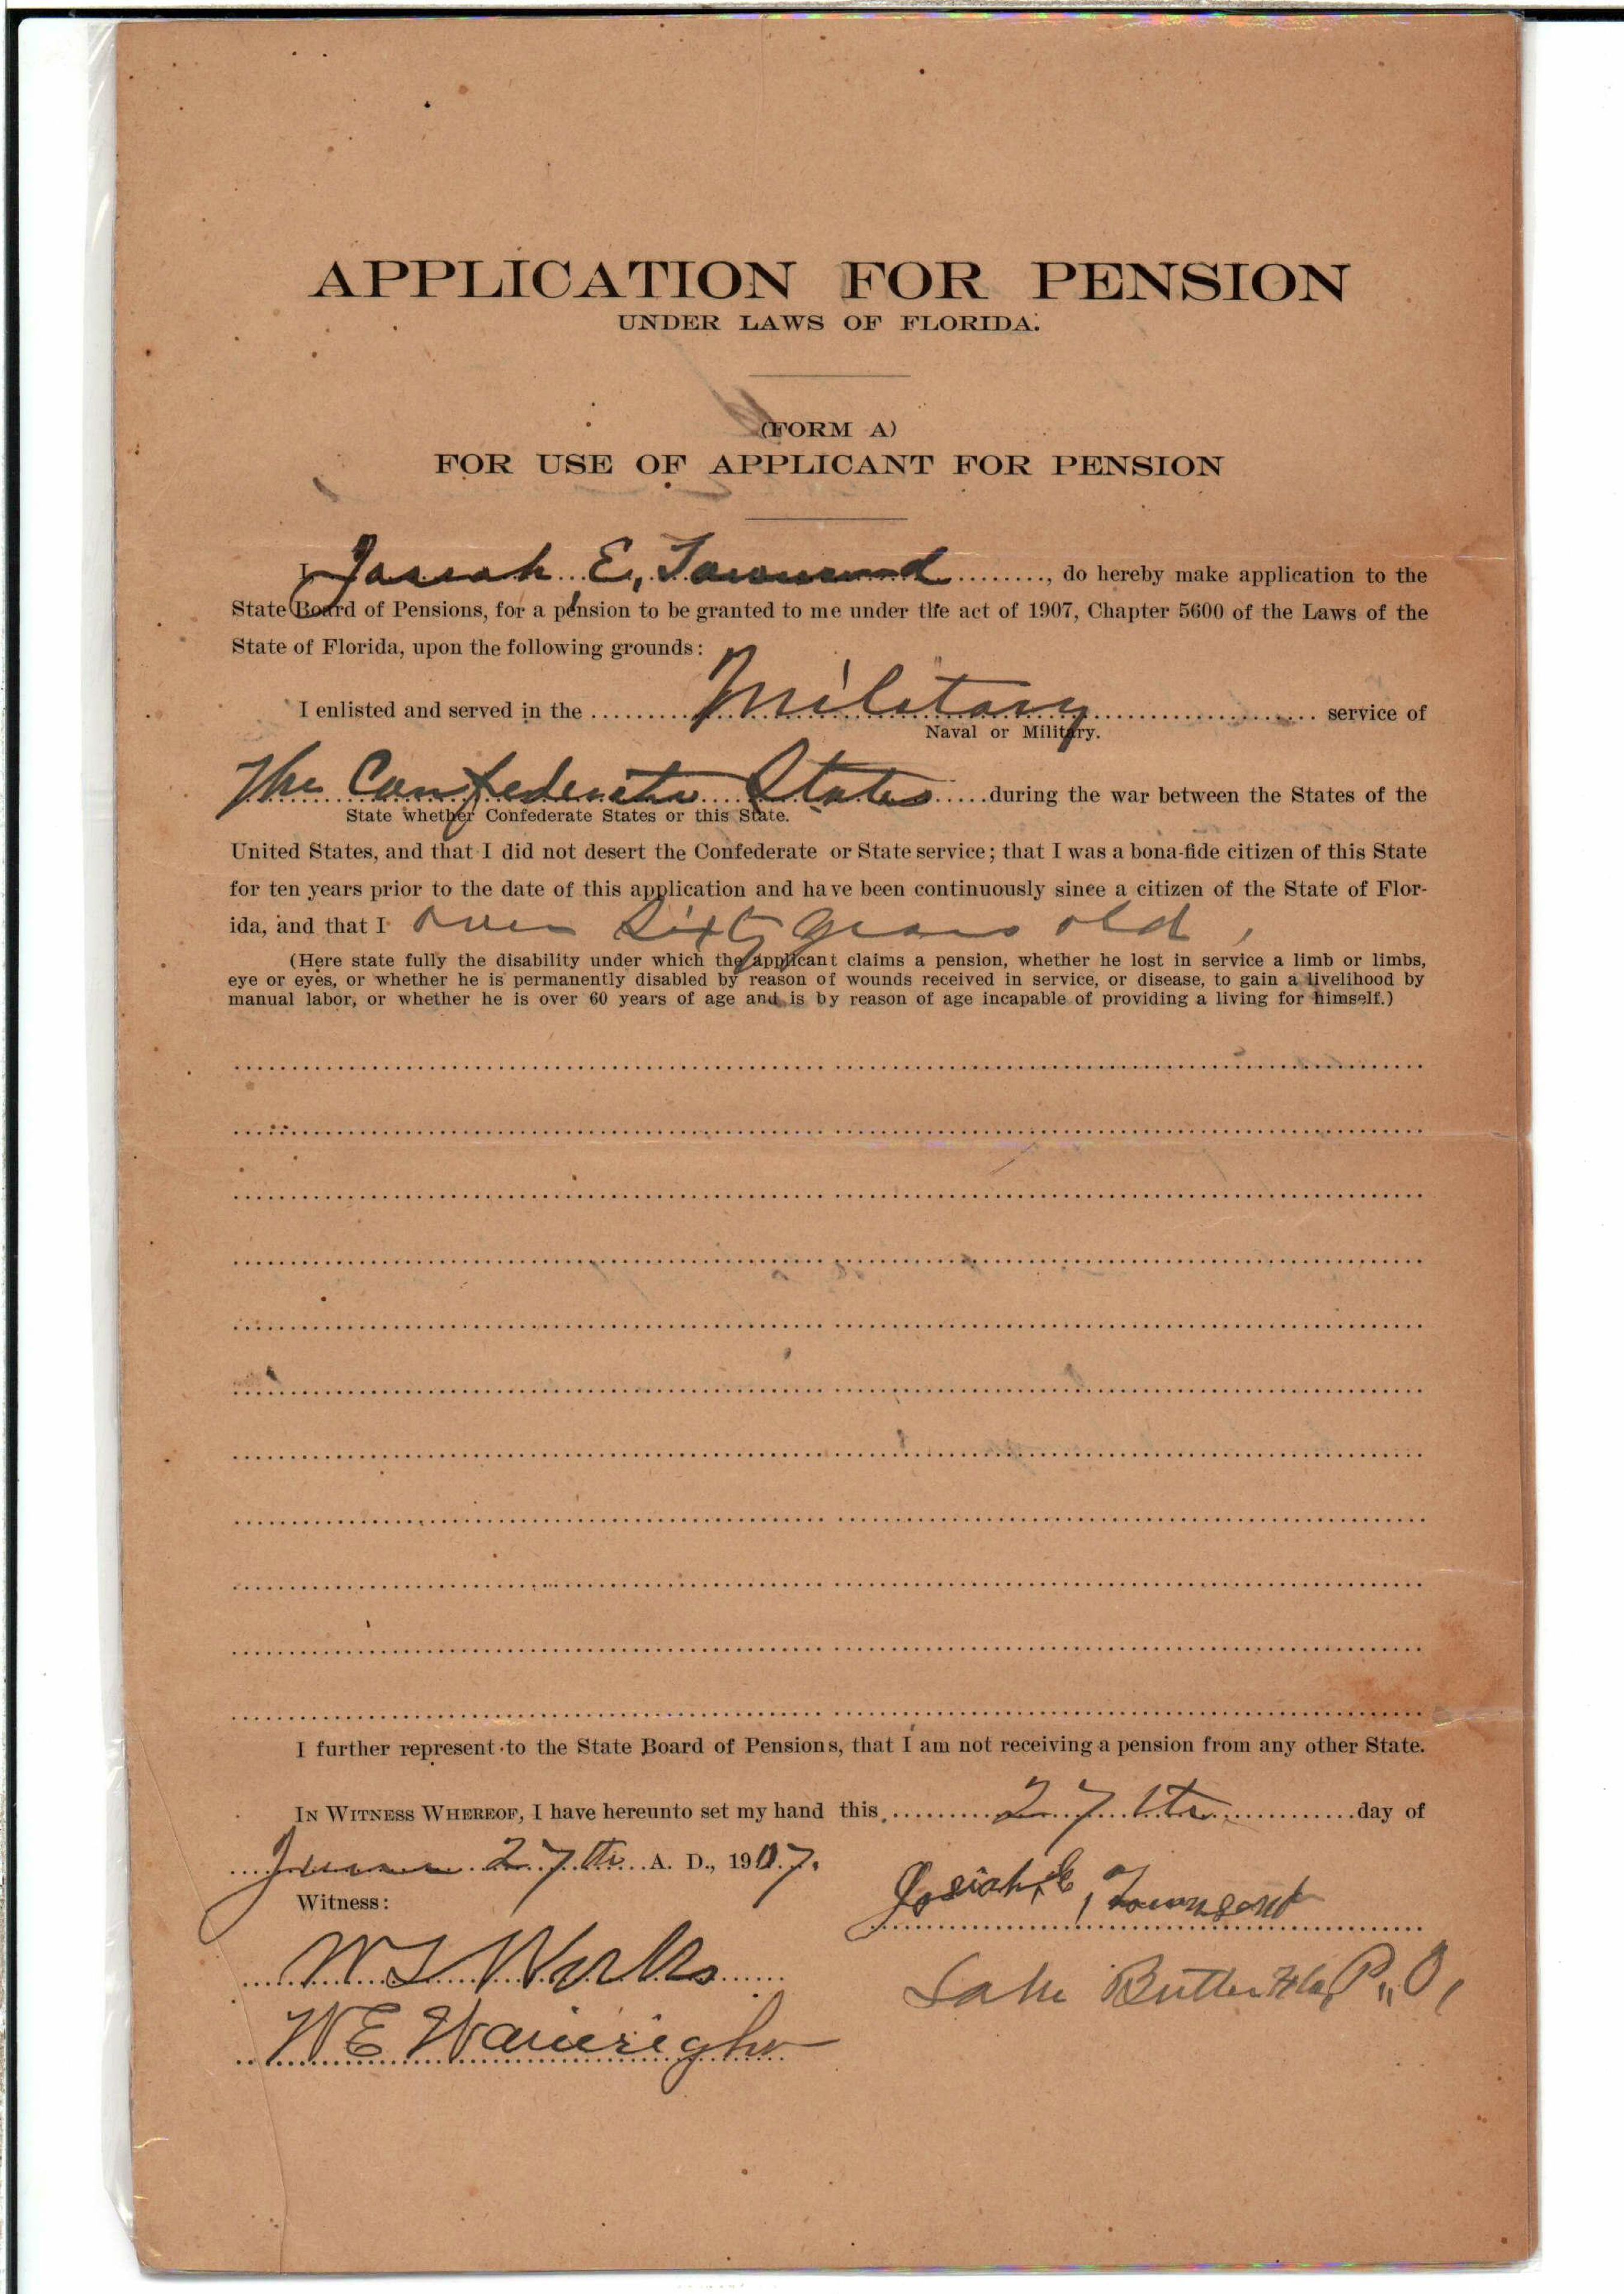 APPLICATION FOR PENSION
UNDER LAWS OF FLORIDA.
(FORM A)
FOR USE OF APPLICANT FOR PENSION
I Josiah E, Townsend ........, do hereby make application to the
State Board of Pensions, for a pension to be granted to me under the act of 1907, Chapter 5600 of the Laws of the
State of Florida, upon the following grounds:
I enlisted and served in the ........ Military ........ service of
Naval or Military.
The Confederate States ..... during the war between the States of the
State whether Confederate States or this State.
United States, and that I did not desert the Confederate or State service; that I was a bona-fide citizen of this State
for ten years prior to the date of this application and have been continuously since a citizen of the State of Flor-
ida, and that I over sixty years old,
(Here state fully the disability under which the applicant claims a pension, whether he lost in service a limb or limbs,
eye or eyes, or whether he is permanently disabled by reason of wounds received in service, or disease, to gain a livelihood by
manual labor, or whether he is over 60 years of age and is by reason of age incapable of providing a living for himself.)
I further represent to the State Board of Pensions, that I am not receiving a pension from any other State.
IN WITNESS WHEREOF, I have hereunto set my hand this ........ 27th ........ day of
June 27th A. D., 1907.
Witness:
Josiah E, Townsend
W E Wainright
Lake Butler Fla, P.,O,